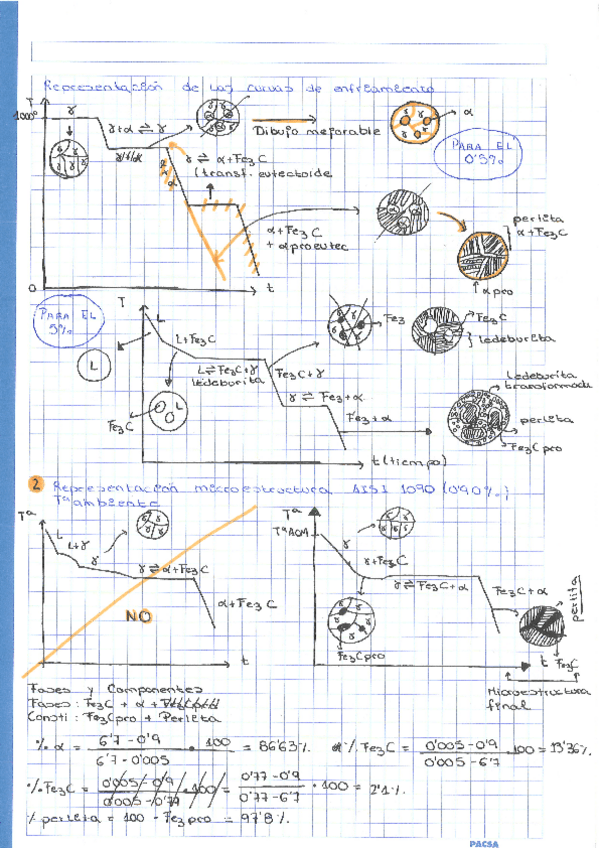 Representación de las curvas de enfriamiento
T
1000º
γ
γ+α ⇌ γ
Dibujo mejorable
α
PARA EL
0'5%
γ ⇌ α+Fe₃C
(transf. eutectoide
α+Fe₃C
+ α proeutec
perlita
α+Fe₃C
α pro
0
t
PARA EL
5%
T
L
L
L+Fe₃C
L⇌Fe₃C+γ
ledeburita
Fe₃C
L
Fe₃C+γ
γ ⇌ Fe₃+α
Fe₃+α
Fe₃
Fe₃C
ledeburita
Ledeburita
transformada
perlita
Fe₃Cpro
t (tiempo)
2 Representación microestructura AISI 1090 (0'90%)
Tªambiente
Tª
L
L+γ
γ
γ ⇌ α+Fe₃C
α+Fe₃C
NO
t
Tª
TªACM
γ
γ+Fe₃C
γ⇌Fe₃C+α
Fe₃C+α
perlita
Fe₃Cpro
t
Fe₃C
Microestructura
final
Fases y Componentes
Fases: Fe₃C + α
Consti: Fe₃Cpro + Perlita
% α = (6'7 - 0'9)/(6'7 - 0'005) · 100 = 86'63%
% Fe₃C = (0'005 - 0'9)/(0'005 - 6'7) · 100 = 13'36%
% Fe₃C = (0'005 - 0'9)/(0'005 - 0'77) · 100 = (0'77 - 0'9)/(0'77 - 6'7) · 100 = 2'1%
% perlita = 100 - Fe₃pro = 97'8%
PACSA